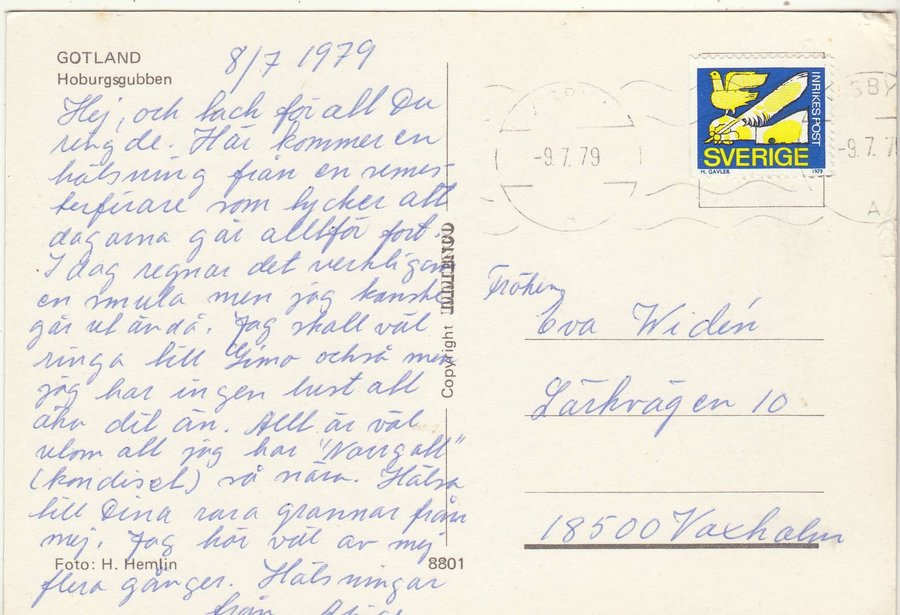 GOTLAND
Hoburgsgubben
8/7 1979
Hej, och tack för att Du
ringde. Här kommer en
hälsning från en semes-
terfirare som tycker att
dagarna går alltför fort.
I dag regnar det verkligen
en smula men jag kanske
går ut ändå. Jag skall väl
ringa till Gimo också men
jag har ingen lust att
åka dit än. Allt är väl
utom att jag har "Nougatt"
(kondiset) så nära. Hälsa
till Dina rara grannar från
mej. Jag hör väl av mej
flera gånger. Hälsningar
från
Foto: H. Hemlin
8801
Copyright
-9.7.79
SBY
-9.7.7
A
INRIKES POST
SVERIGE
H. GAVLER
1979
Fröken
Eva Widén
Lärkvägen 10
18500 Vaxholm